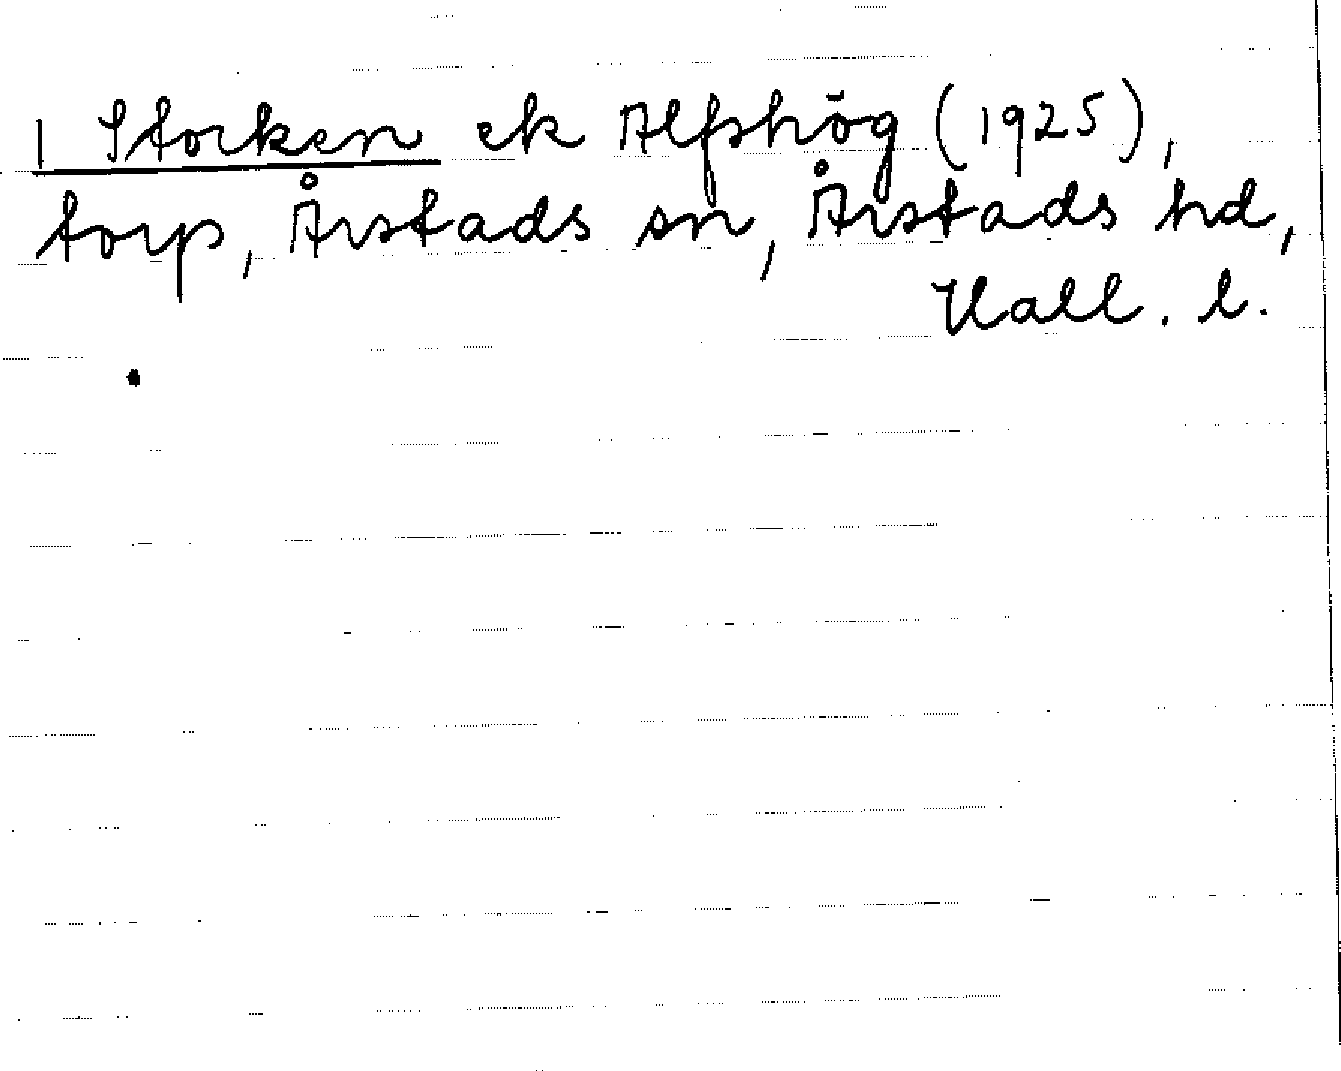 I Storken ek Alfshög (1925),
torp, Årstads sn, Årstads hd,
Hall. l.